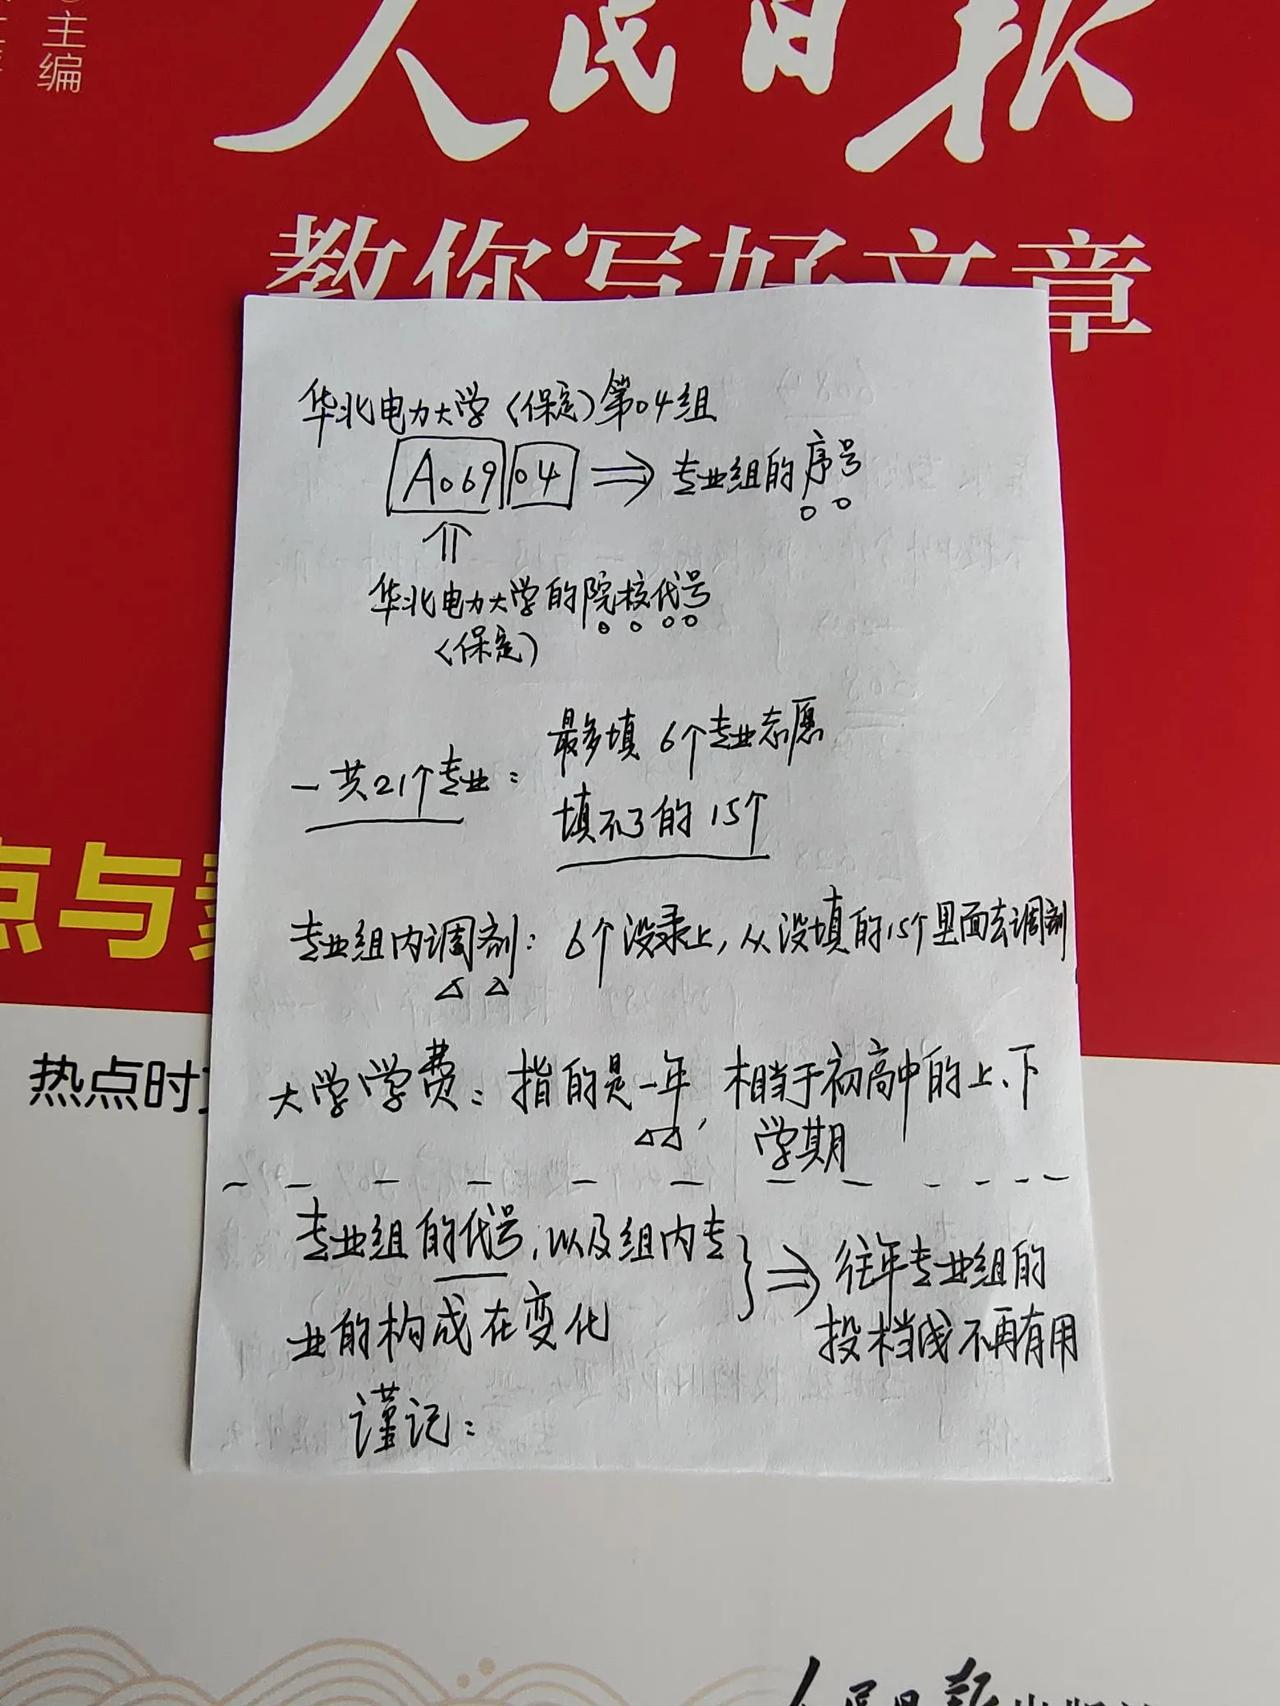 主编
人民日报
教你写好文章
华北电力大学(保定)第04组
A069 04 ⇒ 专业组的序号
华北电力大学的院校代号
(保定)
一共21个专业:
最多填6个专业志愿
填不了的15个
专业组内调剂: 6个没录上,从没填的15个里面去调剂
大学学费: 指的是一年,相当于初高中的上、下
学期
专业组的代号,以及组内专
业的构成在变化
⇒ 往年专业组的
投档线不再有用
谨记:
点与
热点时
人民日报出版社